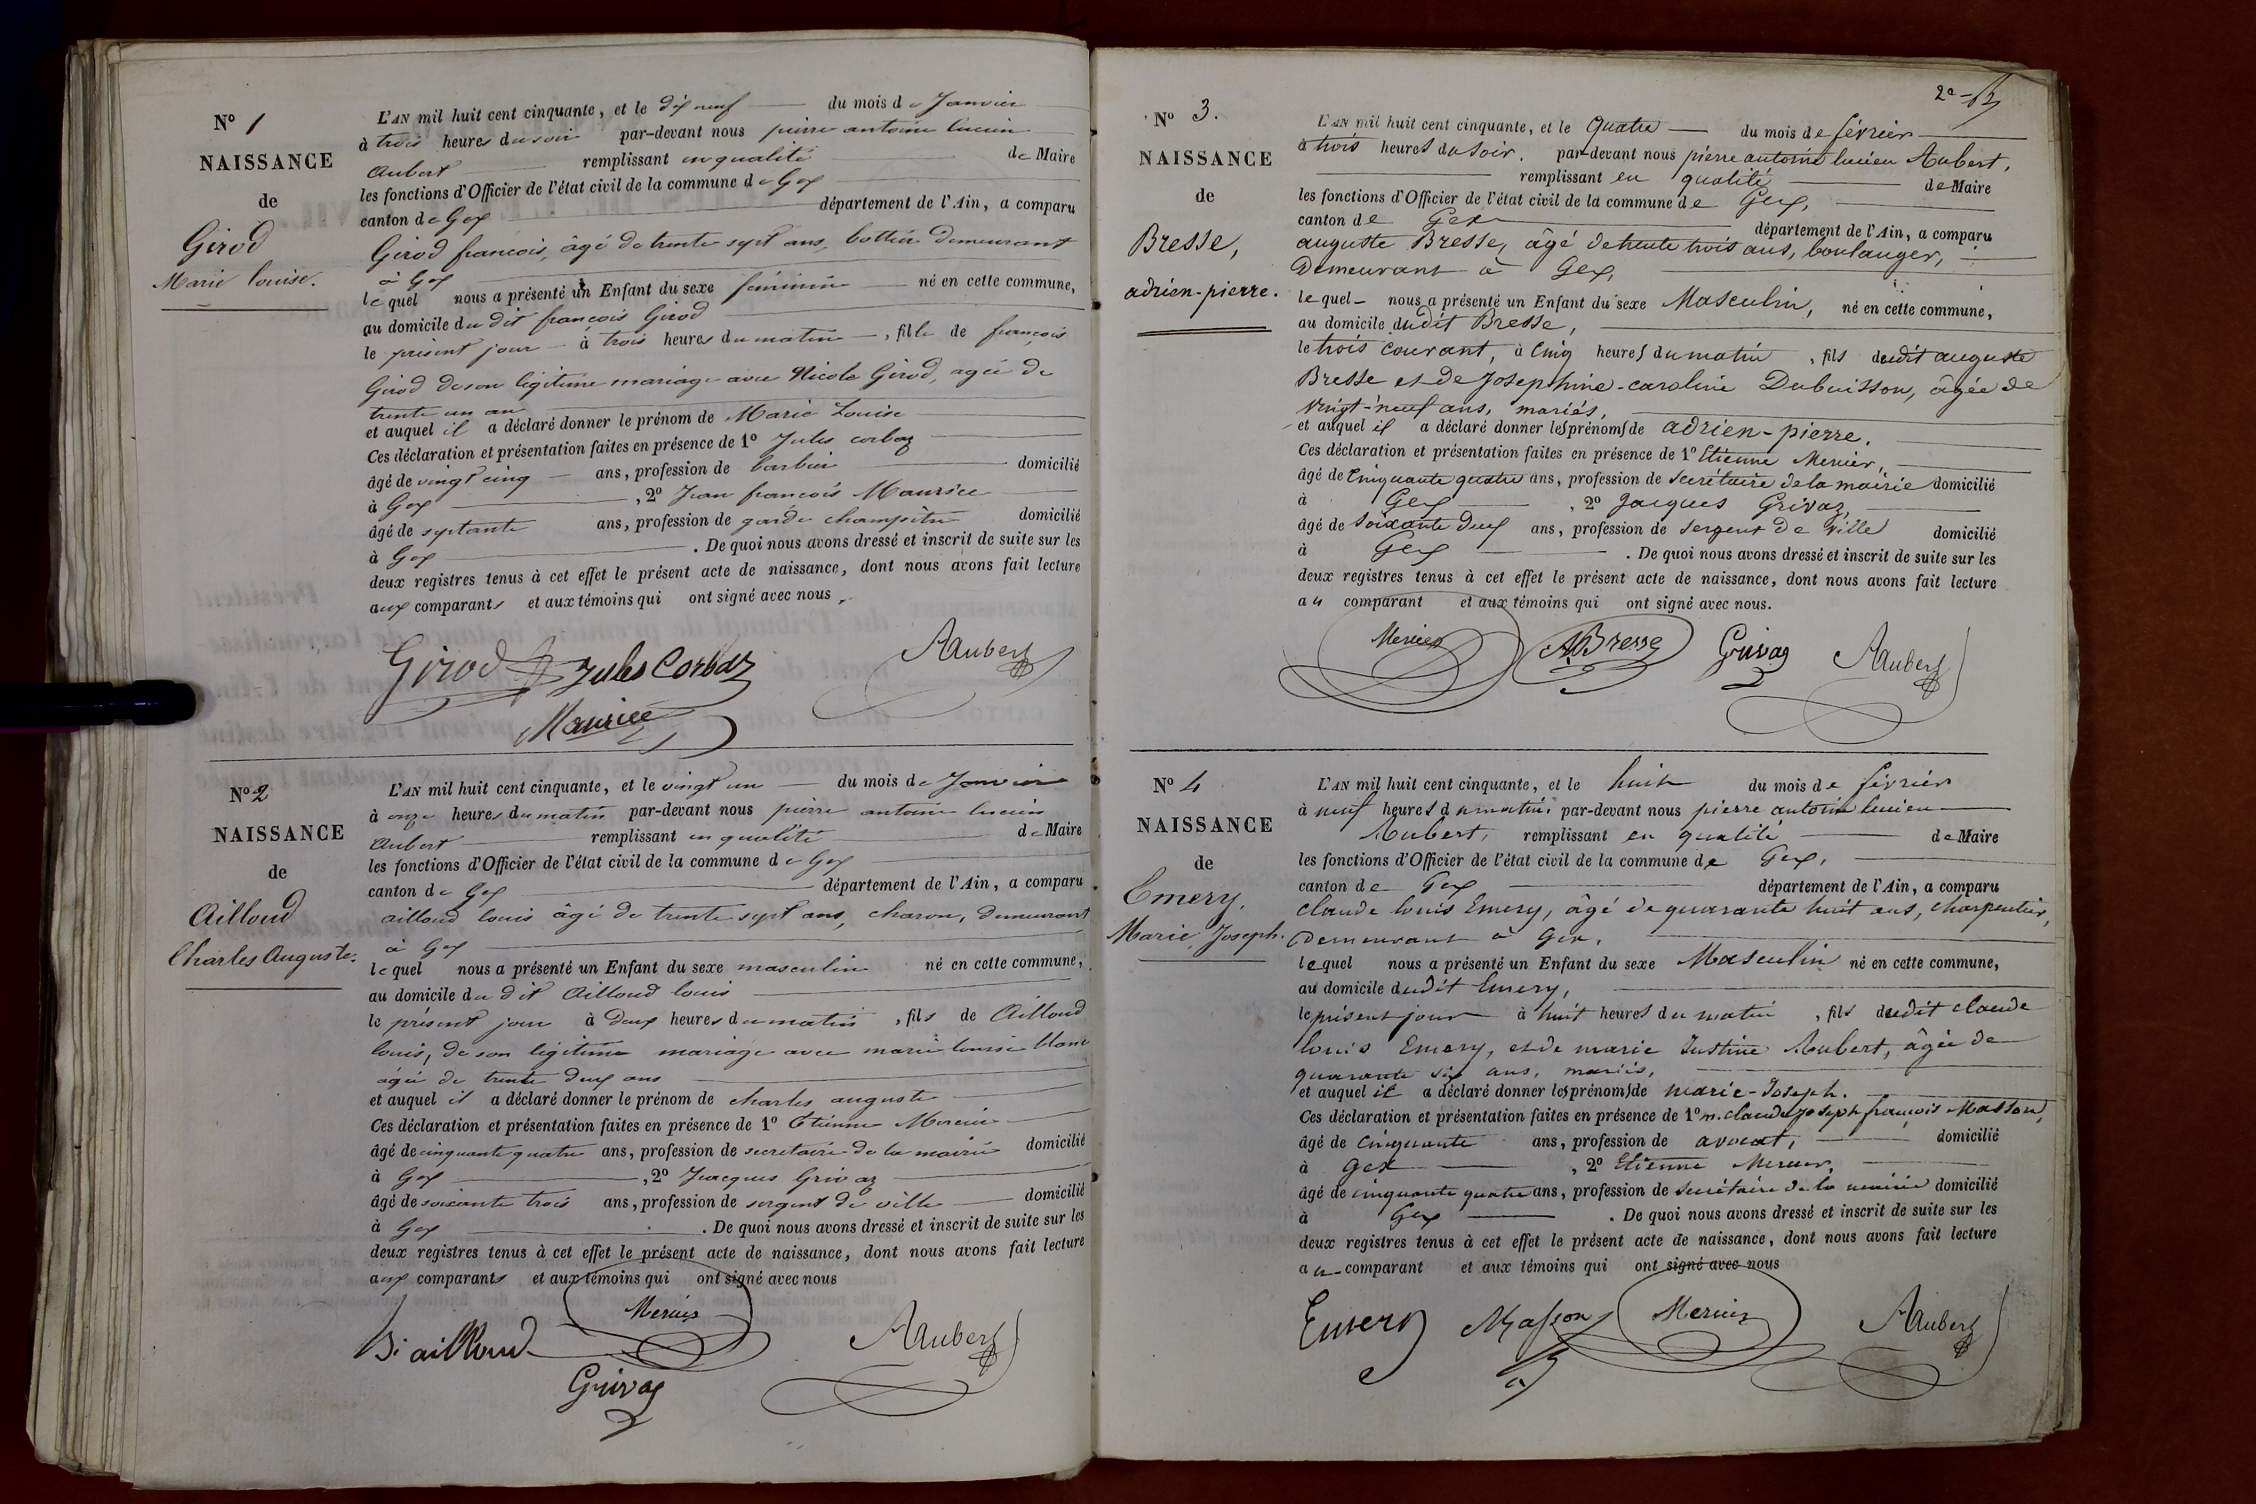 N° 1
NAISSANCE
de
Girod
Marie louise.
L'AN mil huit cent cinquante, et le dix neuf du mois de Janvier
à trois heures du soir par-devant nous pierre antoine lucien
Aubert remplissant en qualité de Maire
les fonctions d'Officier de l'état civil de la commune de Gex
canton de Gex département de l'Ain, a comparu
Girod francois, âgé de trente sept ans, bottier demeurant
à Gex
lequel nous a présenté un Enfant du sexe féminin né en cette commune,
au domicile du dit francois Girod
le présent jour à trois heures du matin, fille de françois
Girod de son légitime mariage avec Nicole Girod, agée de
trente un an
et auquel il a déclaré donner le prénom de Marie Louise
Ces déclaration et présentation faites en présence de 1° Jules corbaz
âgé de vingt cinq ans, profession de barbier domicilié
à Gex, 2° Jean francois Maurice
âgé de septante ans, profession de garde champêtre domicilié
à Gex. De quoi nous avons dressé et inscrit de suite sur les
deux registres tenus à cet effet le présent acte de naissance, dont nous avons fait lecture
aux comparants et aux témoins qui ont signé avec nous.
Girod Jules Corbaz AAubert
Maurice
N° 2
NAISSANCE
de
Ailloud
Charles Auguste.
L'AN mil huit cent cinquante, et le vingt un du mois de Janvier
à onze heures du matin par-devant nous pierre antoine lucien
Aubert remplissant en qualité de Maire
les fonctions d'Officier de l'état civil de la commune de Gex
canton de Gex département de l'Ain, a comparu
ailloud louis âgé de trente sept ans, charon, demeurant
à Gex
lequel nous a présenté un Enfant du sexe masculin né en cette commune,
au domicile du dit Ailloud louis
le présent jour à deux heures du matin, fils de Ailloud
louis, de son légitime mariage avec marie louise blanc
agée de trente deux ans
et auquel il a déclaré donner le prénom de charles auguste
Ces déclaration et présentation faites en présence de 1° Etienne Mercier
âgé de cinquante quatre ans, profession de secretaire de la mairie domicilié
à Gex, 2° Jacques Grivaz
âgé de soixante trois ans, profession de sergent de ville domicilié
à Gex. De quoi nous avons dressé et inscrit de suite sur les
deux registres tenus à cet effet le présent acte de naissance, dont nous avons fait lecture
aux comparants et aux témoins qui ont signé avec nous
ailloud Mercier AAubert
Grivaz
N° 3.
NAISSANCE
de
Bresse,
adrien-pierre.
L'AN mil huit cent cinquante, et le quatre du mois de février
à trois heures du soir. par-devant nous pierre antoine lucien Aubert,
remplissant en qualité de Maire
les fonctions d'Officier de l'état civil de la commune de Gex,
canton de Gex département de l'Ain, a comparu
auguste Bresse, âgé de trente trois ans, boulanger,
Demeurant à Gex,
lequel nous a présenté un Enfant du sexe Masculin, né en cette commune,
au domicile dudit Bresse,
le trois courant, à cinq heures du matin, fils dudit auguste
Bresse et de Josephine-caroline Dubuisson, âgée de
vingt-neuf ans, mariés,
et auquel il a déclaré donner les prénoms de adrien-pierre.
Ces déclaration et présentation faites en présence de 1° Etienne Mercier,
âgé de Cinquante quatre ans, profession de Secrétaire de la mairie domicilié
à Gex, 2° Jacques Grivaz,
âgé de soixante deux ans, profession de sergent de ville domicilié
à Gex. De quoi nous avons dressé et inscrit de suite sur les
deux registres tenus à cet effet le présent acte de naissance, dont nous avons fait lecture
au comparant et aux témoins qui ont signé avec nous.
Mercier ABresse Grivaz AAubert
N° 4
NAISSANCE
de
Emery,
Marie Joseph.
L'AN mil huit cent cinquante, et le huit du mois de février
à neuf heures du matin, par-devant nous pierre antoine lucien
Aubert, remplissant en qualité de Maire
les fonctions d'Officier de l'état civil de la commune de Gex,
canton de Gex département de l'Ain, a comparu
claude louis Emery, âgé de quarante huit ans, charpentier,
Demeurant à Gex,
lequel nous a présenté un Enfant du sexe Masculin né en cette commune,
au domicile dudit Emery,
le présent jour à huit heures du matin, fils dudit claude
louis Emery, et de marie Justine Aubert, âgée de
quarante six ans, mariés,
et auquel il a déclaré donner les prénoms de marie-Joseph.
Ces déclaration et présentation faites en présence de 1° m. claude joseph françois Masson,
âgé de cinquante ans, profession de avocat, domicilié
à Gex, 2° Etienne Mercier,
âgé de cinquante quatre ans, profession de secrétaire de la mairie domicilié
à Gex. De quoi nous avons dressé et inscrit de suite sur les
deux registres tenus à cet effet le présent acte de naissance, dont nous avons fait lecture
au comparant et aux témoins qui ont signé avec nous
Emery Masson Mercier AAubert